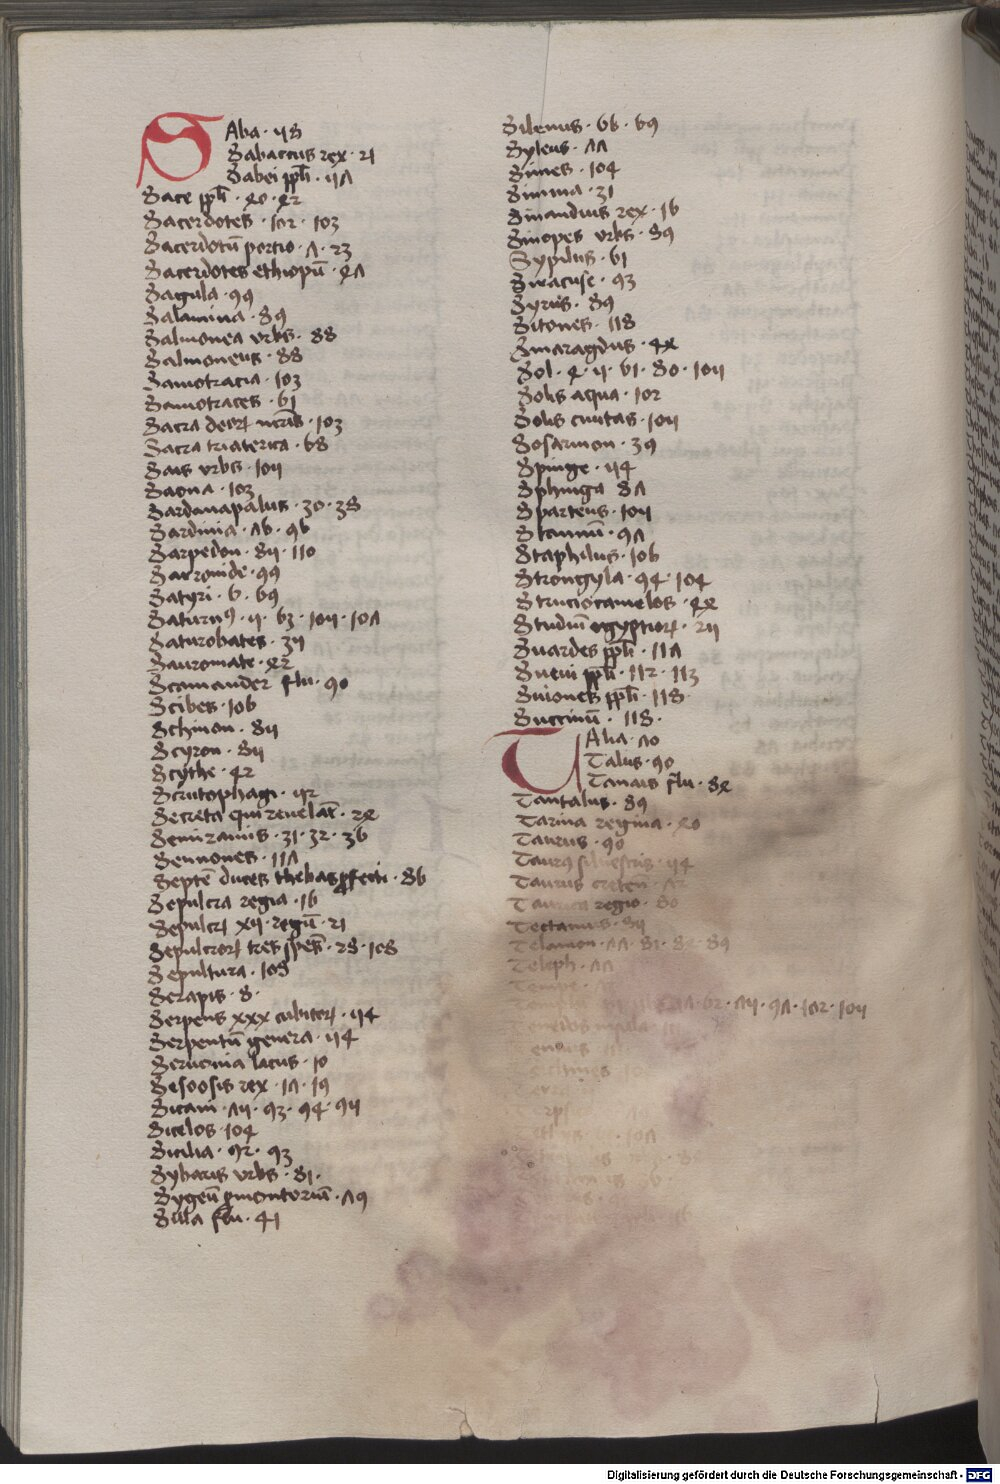 SAba · 58
Sabaccus rex · 21
Sabei ppli · 57
Sace ppli · 40 · 42
Sacerdotes · 102 · 103
Sacerdotū portio · 7 · 23
Sacerdotes ethiopū · 47
Sagula · 99
Salamina · 89
Salmonea vrbs · 88
Salmoneus · 88
Samotracia · 103
Samotraces · 61
Sacra deorꝝ · 103
Sacra triaterica · 68
Sais vrbs · 105
Saona · 103
Sardanapalus · 30 · 38
Sardinia · 76 · 96
Sarpedon · 85 · 110
Saxonide · 99
Satyri · 6 · 69
Saturnꝰ · 5 · 63 · 105 · 107
Saturobates · 35
Sauromate · 42
Scamander flu · 90
Scibes · 106
Schinon · 85
Scyron · 85
Scythe · 42
Scrutophagi · 52
Secreta qui reuelāt · 24
Semiramis · 31 · 32 · 36
Sennones · 117
Septē duces thebas ꝓfecti · 86
Sepulcra regia · 16
Sepulcꝝ xii regū · 21
Sepulcrorꝝ tres spēs · 28 · 108
Sepultura · 108
Serapis · 8 ·
Serpens xxx cubitorꝝ · 54
Serpentū genera · 54
Seruonia lacus · 10
Sesoosis rex · 17 · 19
Sicani · 75 · 93 · 94 · 95
Sicelos · 104
Sicilia · 92 · 93
Sybaris vrbs · 81 ·
Sygeū ꝓmontoriū · 79
Silla flu · 41
Silenus · 66 · 69
Syleus · 77
Simes · 104
Simma · 31
Sinanduis rex · 16
Sinopes vrbs · 89
Sypilus · 61
Siracuse · 93
Syrus · 89
Sitones · 118
Smaragdus · 44
Sol · 4 · 5 · 61 · 80 · 105
Solis aqua · 102
Solis ciuitas · 105
Sosarmon · 39
Spinge · 54
Sphinga 87
Sparteus · 105
Stannū · 97
Staphilus · 106
Strongyla · 94 · 104
Strucȷocamelos · 44
Studiū egyptiorꝝ · 25
Suardes ppli · 117
Sueui ppli · 112 · 113
Suiones ppli · 118 ·
Succinū · 118 ·
TAlia · 70
Talus · 90
Tanais flu · 84
Tantalus · 89
Tarina regina · 40
Taurus · 90
Taurꝰ siluestris · 54
Taurus creten̄ · 72
Taurica regio · 80
Tectamus · 85
Telamon · 77 · 81 · 84 · 89
Teleph · 77
62 · 75 · 97 · 102 · 105